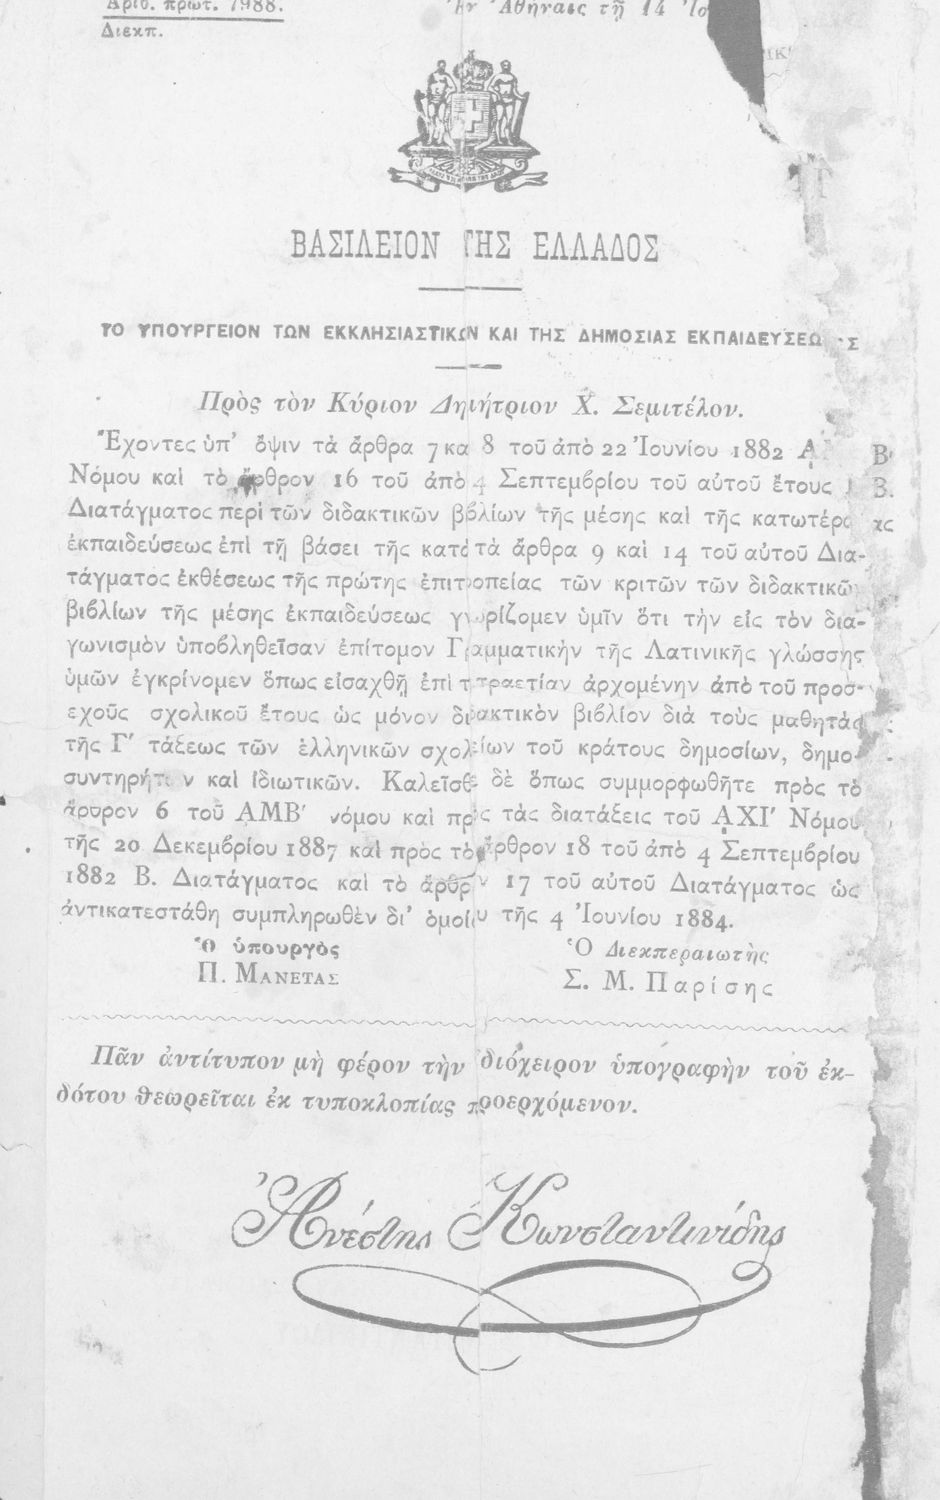 Ἀριθ. πρωτ. 7988.
Διεκπ.
Ἐν Ἀθήναις τῇ 14
ΒΑΣΙΛΕΙΟΝ ΤΗΣ ΕΛΛΑΔΟΣ
ΤΟ ΥΠΟΥΡΓΕΙΟΝ ΤΩΝ ΕΚΚΛΗΣΙΑΣΤΙΚΩΝ ΚΑΙ ΤΗΣ ΔΗΜΟΣΙΑΣ ΕΚΠΑΙΔΕΥΣΕΩΣ
Πρὸς τὸν Κύριον Δημήτριον Χ. Σεμιτέλον.
Ἔχοντες ὑπ' ὄψιν τὰ ἄρθρα 7 κα 8 τοῦ ἀπὸ 22 Ἰουνίου 1882
Νόμου καὶ τὸ ἄρθρον 16 τοῦ ἀπὸ 4 Σεπτεμβρίου τοῦ αὐτοῦ ἔτους Β.
Διατάγματος περὶ τῶν διδακτικῶν βιβλίων τῆς μέσης καὶ τῆς κατωτέρας
ἐκπαιδεύσεως ἐπὶ τῇ βάσει τῆς κατὰ τὰ ἄρθρα 9 καὶ 14 τοῦ αὐτοῦ Δια-
τάγματος ἐκθέσεως τῆς πρώτης ἐπιτροπείας τῶν κριτῶν τῶν διδακτικῶν
βιβλίων τῆς μέσης ἐκπαιδεύσεως γνωρίζομεν ὑμῖν ὅτι τὴν εἰς τὸν δια-
γωνισμὸν ὑποβληθεῖσαν ἐπίτομον Γραμματικὴν τῆς Λατινικῆς γλώσσης
ὑμῶν ἐγκρίνομεν ὅπως εἰσαχθῇ ἐπὶ τετραετίαν ἀρχομένην ἀπὸ τοῦ προσ-
εχοῦς σχολικοῦ ἔτους ὡς μόνον διδακτικὸν βιβλίον διὰ τοὺς μαθητὰς
τῆς Γ' τάξεως τῶν ἑλληνικῶν σχολείων τοῦ κράτους δημοσίων, δημο-
συντηρήτων καὶ ἰδιωτικῶν. Καλεῖσθε δὲ ὅπως συμμορφωθῆτε πρὸς τὸ
ἄρθρον 6 τοῦ ΑΜΒ' νόμου καὶ πρὸς τὰς διατάξεις τοῦ ͵ΑΧΙ' Νόμου
τῆς 20 Δεκεμβρίου 1887 καὶ πρὸς τὸ ἄρθρον 18 τοῦ ἀπὸ 4 Σεπτεμβρίου
1882 Β. Διατάγματος καὶ τὸ ἄρθρον 17 τοῦ αὐτοῦ Διατάγματος ὡς
ἀντικατεστάθη συμπληρωθὲν δι' ὁμοίου τῆς 4 Ἰουνίου 1884.
Ὁ ὑπουργὸς
Π. ΜΑΝΕΤΑΣ
Ὁ Διεκπεραιωτὴς
Σ. Μ. Παρίσης
Πᾶν ἀντίτυπον μὴ φέρον τὴν ἰδιόχειρον ὑπογραφὴν τοῦ ἐκ-
δότου θεωρεῖται ἐκ τυποκλοπίας προερχόμενον.
Ἀνέστης Κωνσταντινίδης